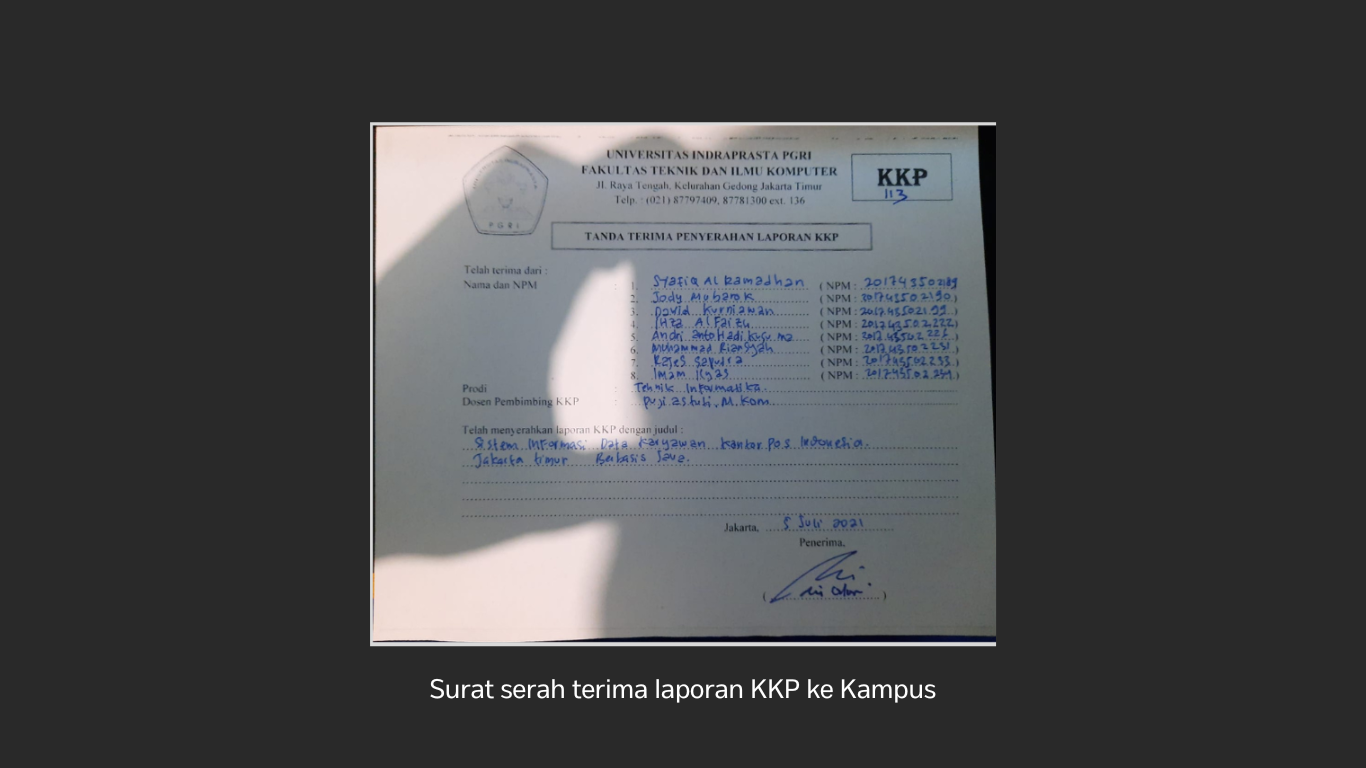 UNIVERSITAS INDRAPRASTA PGRI
FAKULTAS TEKNIK DAN ILMU KOMPUTER
Jl. Raya Tengah, Kelurahan Gedong Jakarta Timur
Telp. : (021) 87797409, 87781300 ext. 136
KKP
113
PGRI
TANDA TERIMA PENYERAHAN LAPORAN KKP
Telah terima dari :
Nama dan NPM :
1. Syafiq Al Ramadhan ( NPM : 201743502189
2. Jody Mubarok ( NPM : 201743502190 )
3. David Kurniawan ( NPM : 201743502199 )
4. Al Faizu ( NPM : 201743502222 )
5. Andri ( NPM :
6. Muhammad Riansyah ( NPM : 201743502231 )
7. Saputra ( NPM : 201743502233 )
8. Imam Ilyas ( NPM :
Prodi Teknik Informatika
Dosen Pembimbing KKP : Puji astuti, M.Kom
Telah menyerahkan laporan KKP dengan judul :
Sistem Informasi Data Karyawan Kantor Pos Indonesia.
Jakarta timur Berbasis Java.
Jakarta, 5 Juli 2021
Penerima,
Surat serah terima laporan KKP ke Kampus